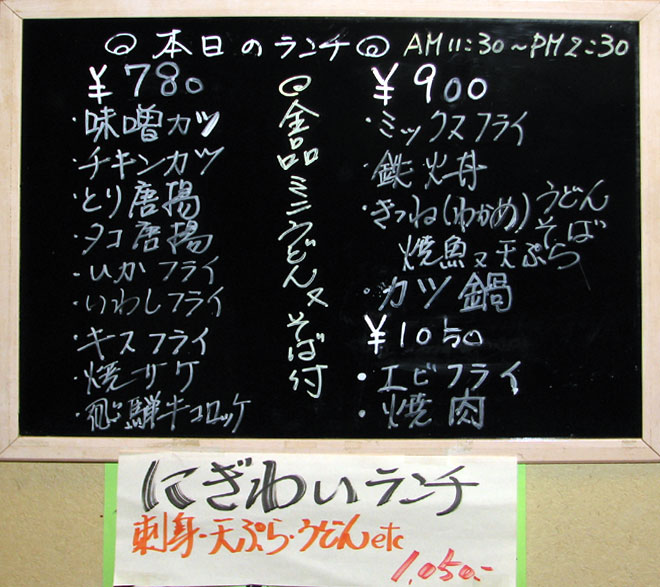 ◎ 本日のランチ ◎ AM 11:30~PM 2:30
¥780
・味噌カツ
・チキンカツ
・とり唐揚
・タコ唐揚
・いかフライ
・いわしフライ
・キスフライ
・焼サケ
・飛騨牛コロッケ
◎全品ミニうどん又そば付
¥900
・ミックスフライ
・鉄火丼
・きつね(わかめ)うどん
そば
焼魚又天ぷら
・カツ鍋
¥1050
・エビフライ
・焼肉
にぎわいランチ
刺身・天ぷら・うどん etc
1,050-